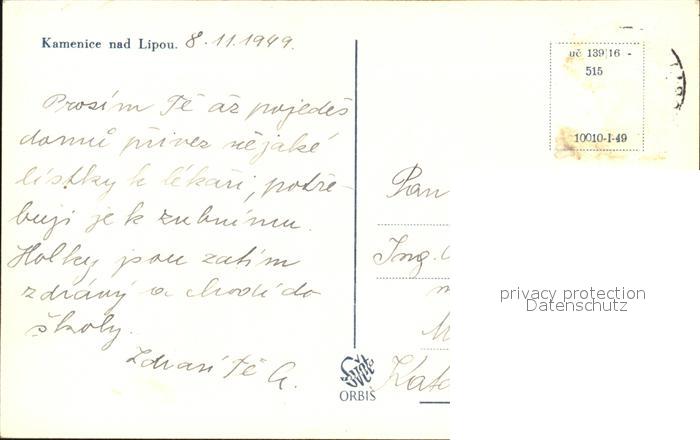 Kamenice nad Lipou. 8.11.1949.
uč 139|16 -
515
10010-I-49
Prosím Tě až pojedeš
domů přivez nějaké
lístky k lékaři, potře-
buji je k zubnímu.
Holky jsou zatím
zdrávy a chodí do
školy.
Zdraví Tě A.
Pan
Ing.
Kato
Svět
ORBIS
privacy protection
Datenschutz